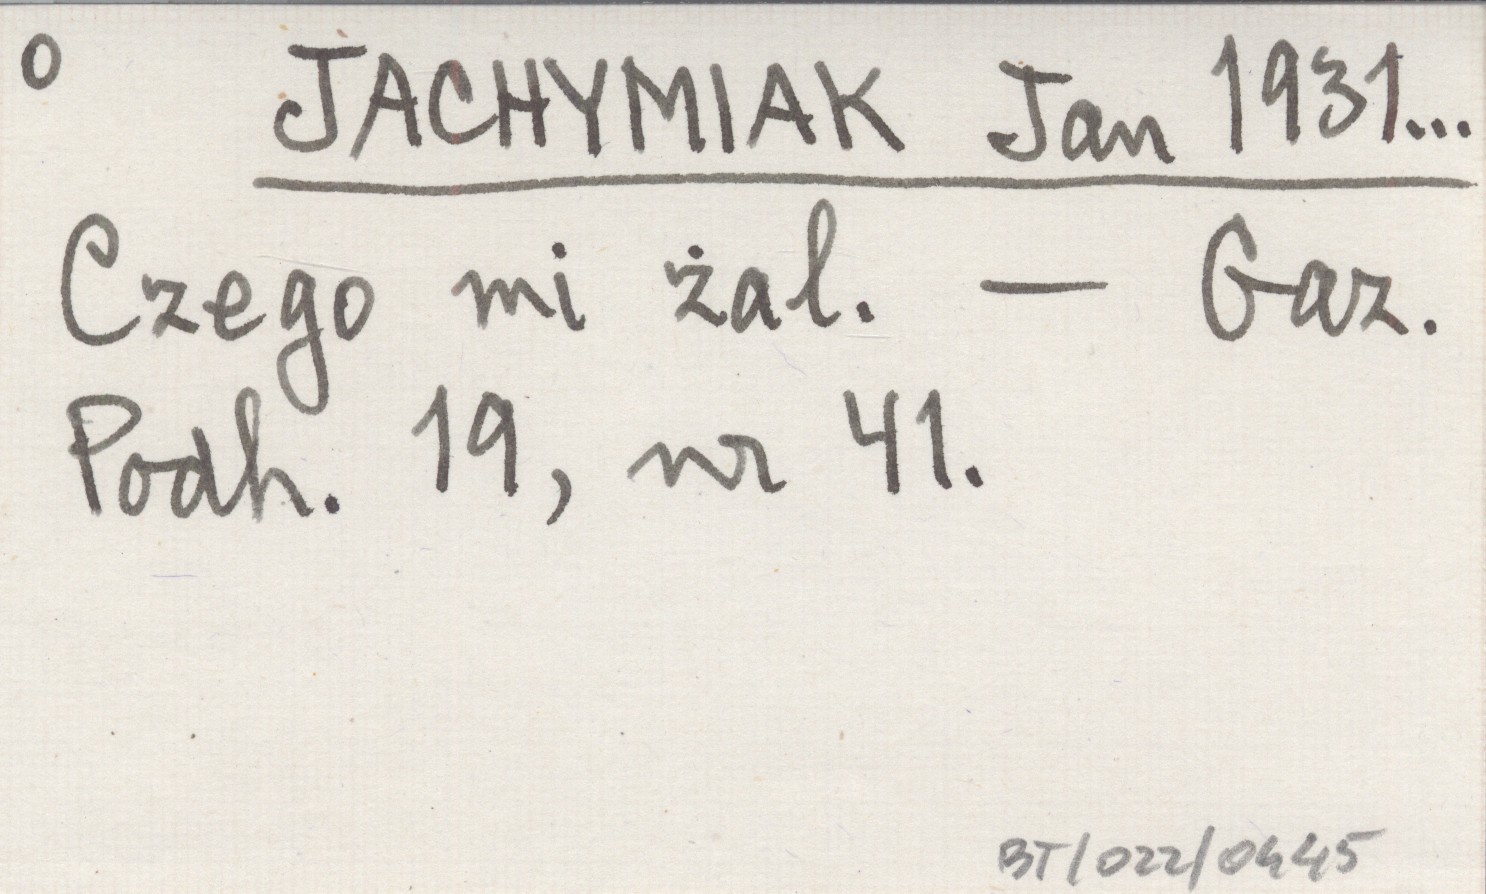 O JACHYMIAK Jan 1931...
Czego mi żal. — Gaz.
Podh. 19, nr 41.
BT/022/0445